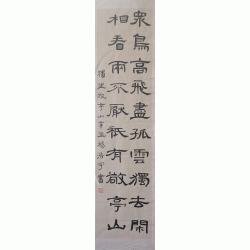 眾鳥高飛盡孤雲獨去閑
相看兩不厭祇有敬亭山
獨坐敬亭山